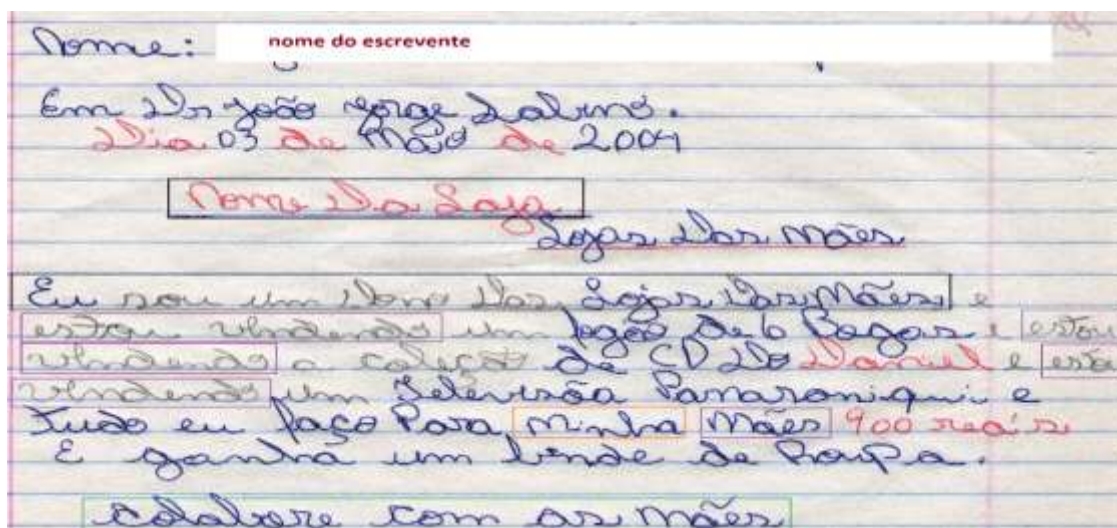 Nome: nome do escrevente
Em Dr João Jorge Sabino.
Dia 03 de Maio de 2004
Nome Da Loja
Lojas Das Mães
Eu sou um Dom Das Lojas Das Mães e
estou vendendo um fogão de 6 Bogas e estou
vendendo a coleção de CD Do Daniel e esto
vendendo um Televisõa Panasoniqui e
Tudo eu faço Para minha Mães 900 reais
E ganha um binde de RouPa.
colabore com as mães